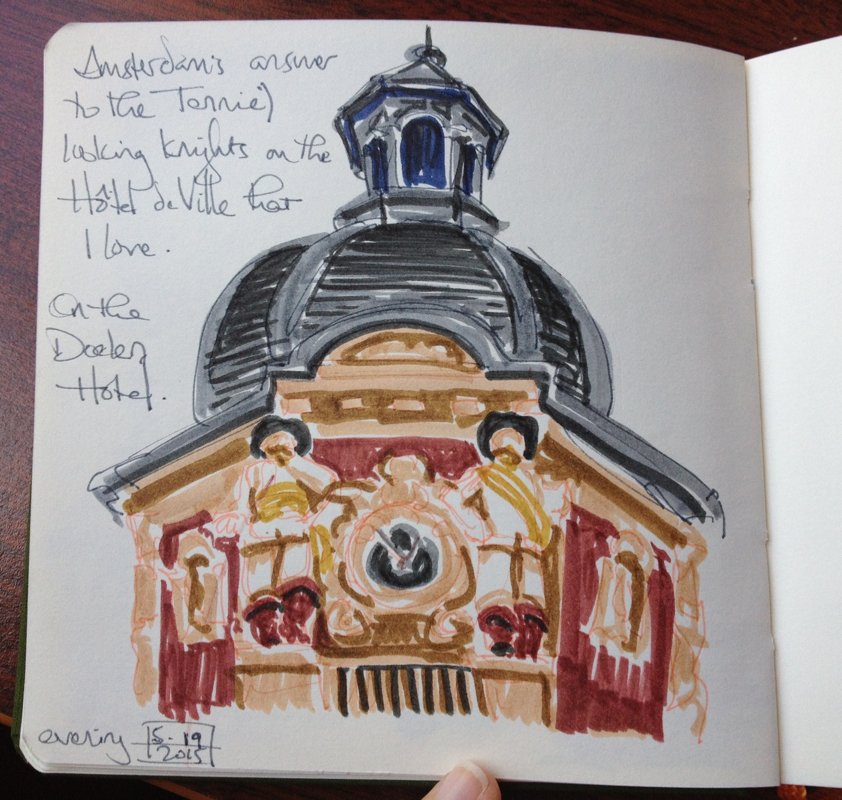 Amsterdam's answer
to the Tonnie's
looking Knights on the
Hôtel de Ville that
I love.
On the
Doelen
Hotel.
evening 5-19
2015